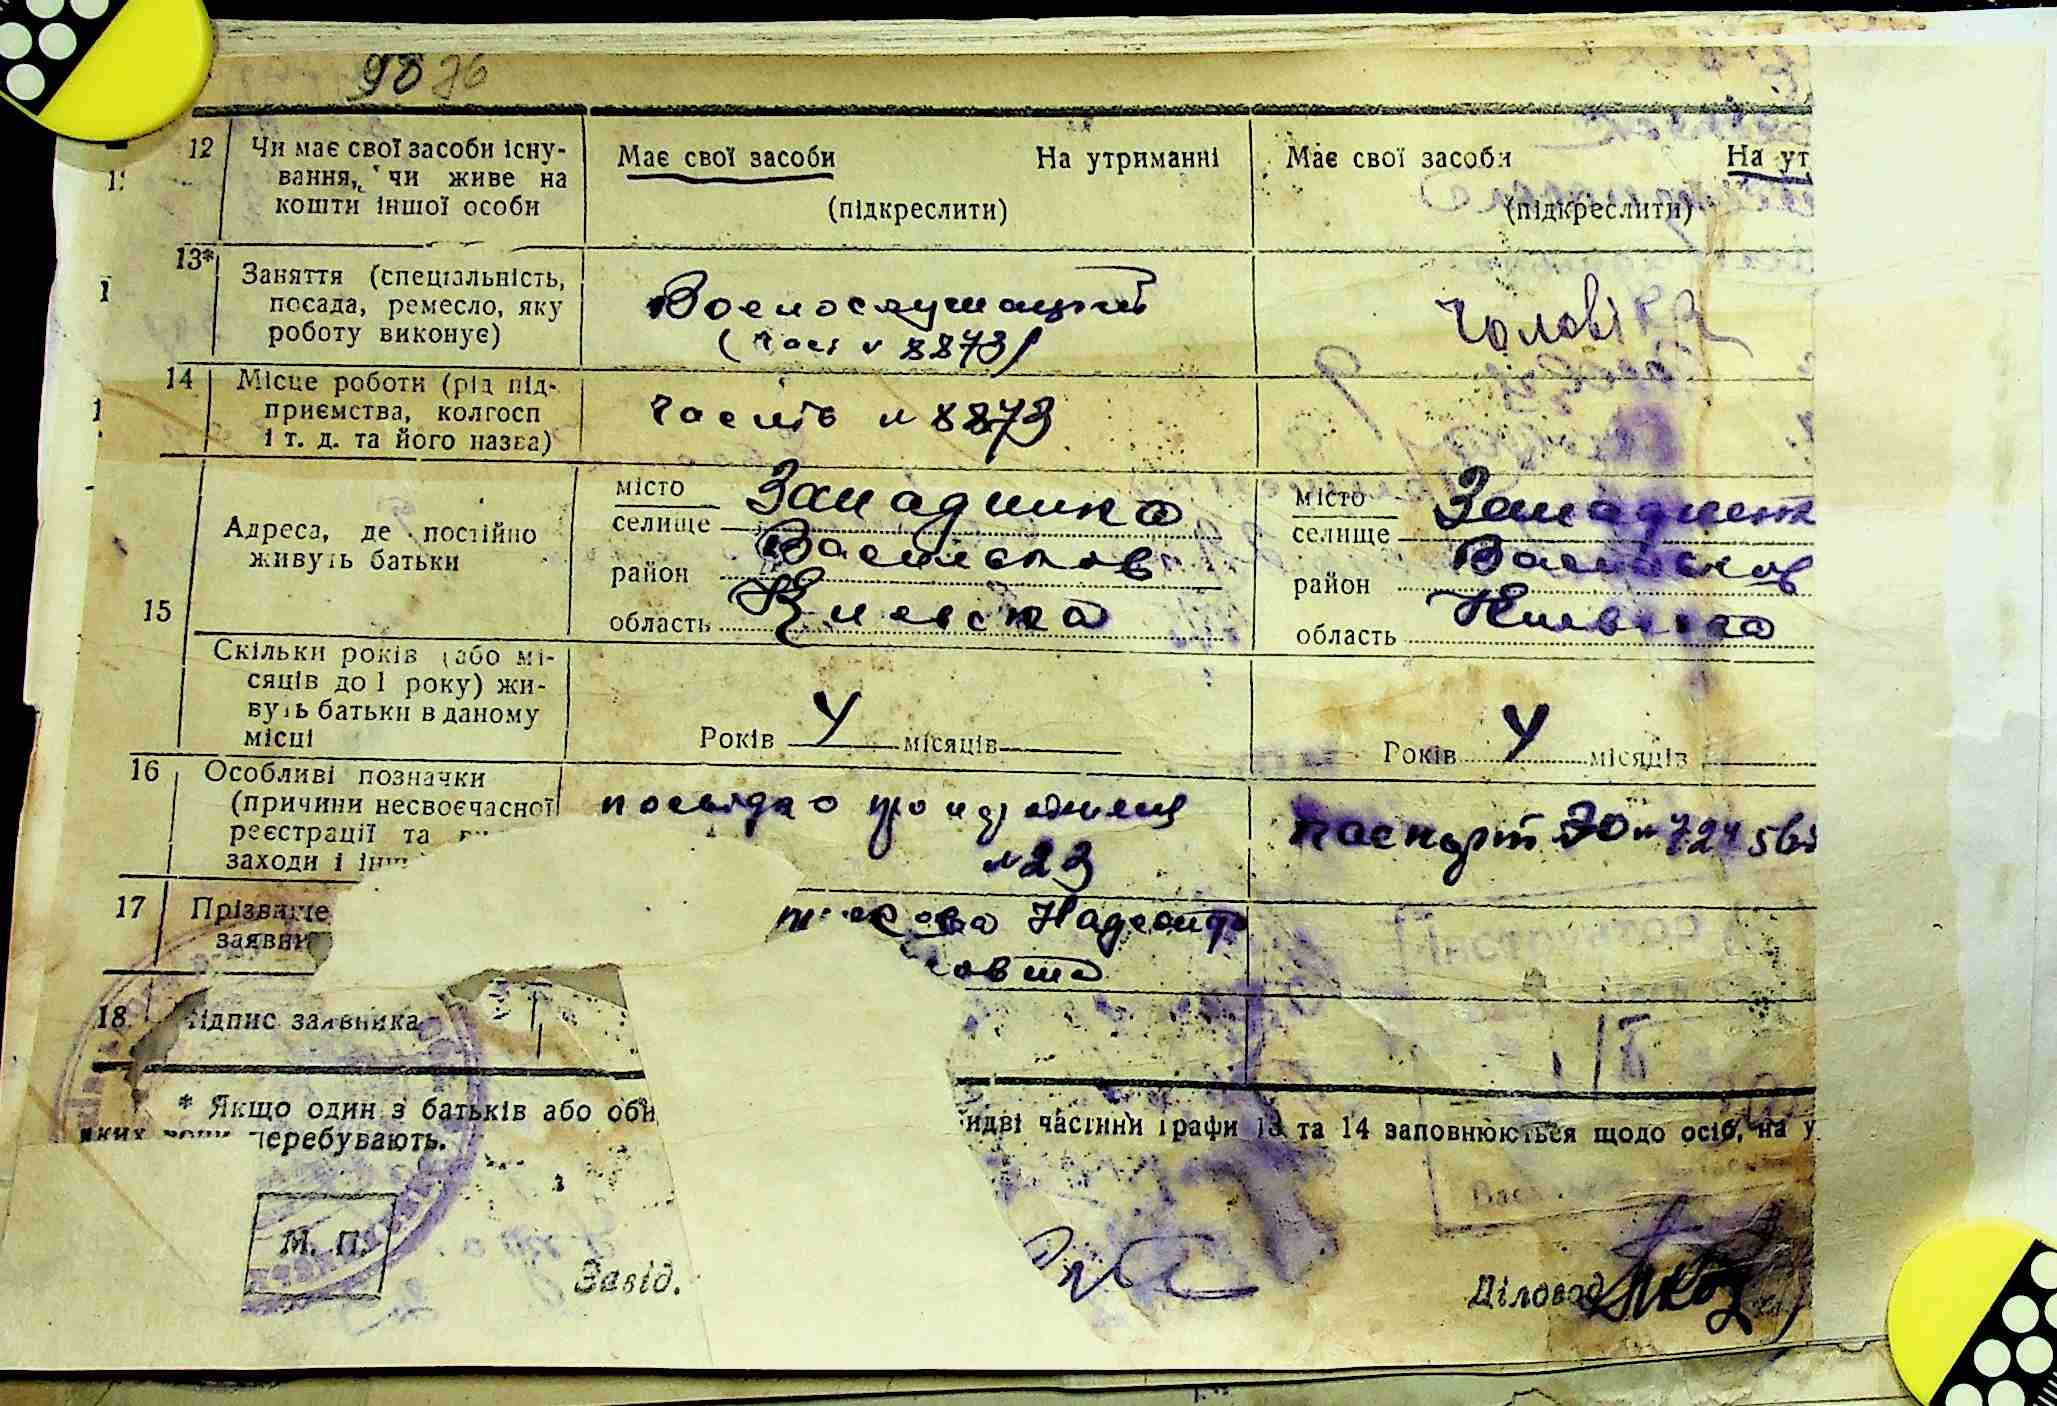 9876
12 Чи має свої засоби існу-
вання, чи живе на
кошти іншої особи
Має свої засоби На утриманні
(підкреслити)
Має свої засоби На ут
(підкреслити)
13* Заняття (спеціальність,
посада, ремесло, яку
роботу виконує)
Воєнослужащий
(част № 8873)
Чоловік
14 Місце роботи (рід під-
приємства, колгосп
і т. д. та його назва)
часть № 8873
15 Адреса, де постійно
живуть батьки
місто
селище Западинка
район Васильков
область Киевска
місто
селище
район Васильков
область Киевска
Скільки років (або мі-
сяців до 1 року) жи-
вуть батьки в даному
місці
Років 4 місяців
Років 4 місяців
16 Особливі позначки
(причини несвоєчасної
реєстрації та
заходи і інш
№ 23
паспорт
17 Прізвище
заяви
18. Підпис заявника
* Якщо один з батьків або оби
идві частини графи 13 та 14 заповнюються щодо осіб, на у
яких вони перебувають.
Інструктор
М. П.
Завід.
Діловод